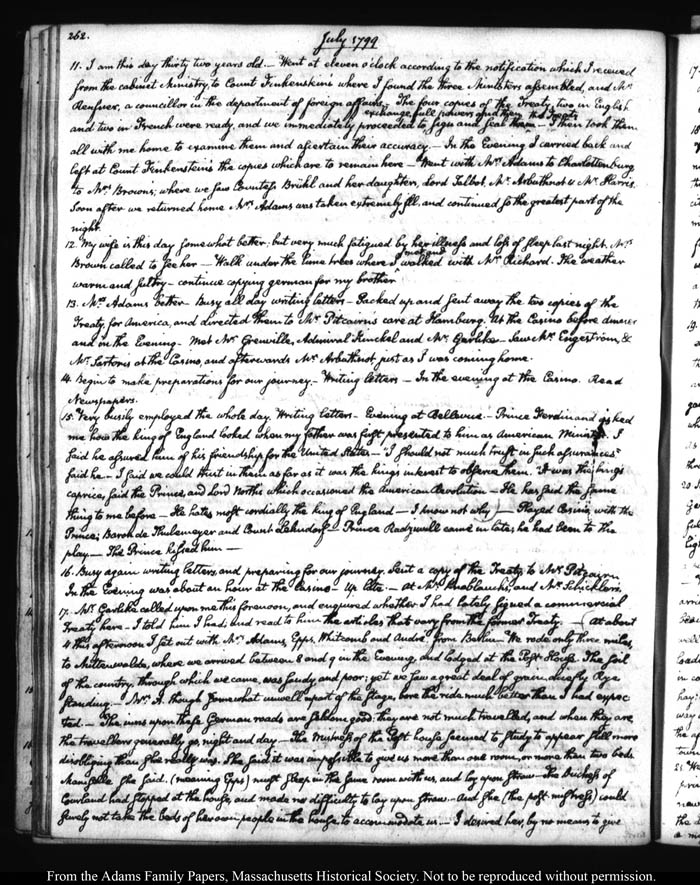 262.
July 1799
11. I am this day thirty two years old. — Went at eleven o'clock according to the notification which I received
from the cabinet Ministry, to Count Finkenstein's where I found the three Ministers assembled, and Mr
Renfner, a councillor in the department of foreign affairs. The four copies of the Treaty, two in English
exchange full powers and then the Treaty
and two in French were ready, and we immediately proceeded to sign and seal them — I then took them
all with me home to examine them and ascertain their accuracy. — In the Evening I carried back and
left at Count Finkenstein's the copies which are to remain here — Went with Mrs Adams to Charlottenburg
to Mrs Brown's; where we saw Countess Brühl and her daughters, Lord Talbot, Mr Arbuthnot & Mr Harris.
Soon after we returned home Mrs Adams was taken extremely ill, and continued so the greatest part of the
night.
12. My wife is this day somewhat better, but very much fatigued by her illness and loss of sleep last night. Mrs
Brown called to see her — Walk under the lime trees where I met and walked with Mr Richard. The weather
warm and sultry — continue copying german for my brother.
13. Mrs Adams better. Busy all day writing letters — Packed up and sent away the two copies of the
Treaty, for America, and directed them to Mr Pitcairn's care at Hamburg. At the Casino before dinner
and in the Evening. Met Mr Grenville, Admiral Kinckel and Mr Garlike. Saw Mr Engeström, &
Mr Sartoris at the Casino, and afterwards Mr Arbuthnot just as I was coming home.
14. Begin to make preparations for our journey. — Writing letters — In the evening at the Casino. Read
Newspapers.
15. Very busily employed the whole day. Writing letters — Evening at Bellevue — Prince Ferdinand asked
me how the king of England looked when my father was first presented to him as American Minister. I
said he assured him of his friendship for the United States — "I should not much trust in such assurances"
said he — I said we could trust in them as far as it was the kings interest to observe them. It was the kings
caprice, said the Prince, and Lord North's which occasioned the American Revolution — He has said the same
thing to me before — He hates most cordially the king of England — I know not why) — Played Casino, with the
Prince, Baron de Thulemeyer and Count Lehndorf — Prince Radzivill came in late; he had been to the
play. — The Prince hissed him —
16. Busy again writing letters, and preparing for our journey. Sent a copy of the Treaty to Mr Pitcairn.
In the Evening was about an hour at the Casino — Up late. — At Mrs Knoblauch's, and Mr Schickler's.
17. Mr Garlike called upon me this forenoon, and enquired whether I had lately signed a commercial
Treaty here — I told him I had, and read to him the articles that vary from the former Treaty. — At about
4 this afternoon I set out with Mrs Adams, Epps, Whitcomb and André from Berlin. We rode only three miles,
to Mittenwalde, where we arrived between 8 and 9 in the Evening, and lodged at the Post House. The soil
of the country, through which we came, was sandy and poor; yet we saw a great deal of grain, chiefly Rye
standing. — Mrs A. though somewhat unwell a part of the stage, bore the ride much better than I had expec
ted. — The inns upon these German roads are seldom good: they are not much travelled, and when they are
the travellers generally go night and day — The Mistress of the Post house seemed to study to appear still more
disobliging than she really was. She said it was impossible to give us more than one room, or more than two beds
Mamzelle she said, (meaning Epps) must sleep in the same room with us, and lay upon straw — The Duchess of
Courland had stopped at the house, and made no difficulty to lay upon straw. And she (the post-mistress) could
surely not take the beds of her own people in the house, to accommodate us. — I desired her, by no means to give
From the Adams Family Papers, Massachusetts Historical Society. Not to be reproduced without permission.